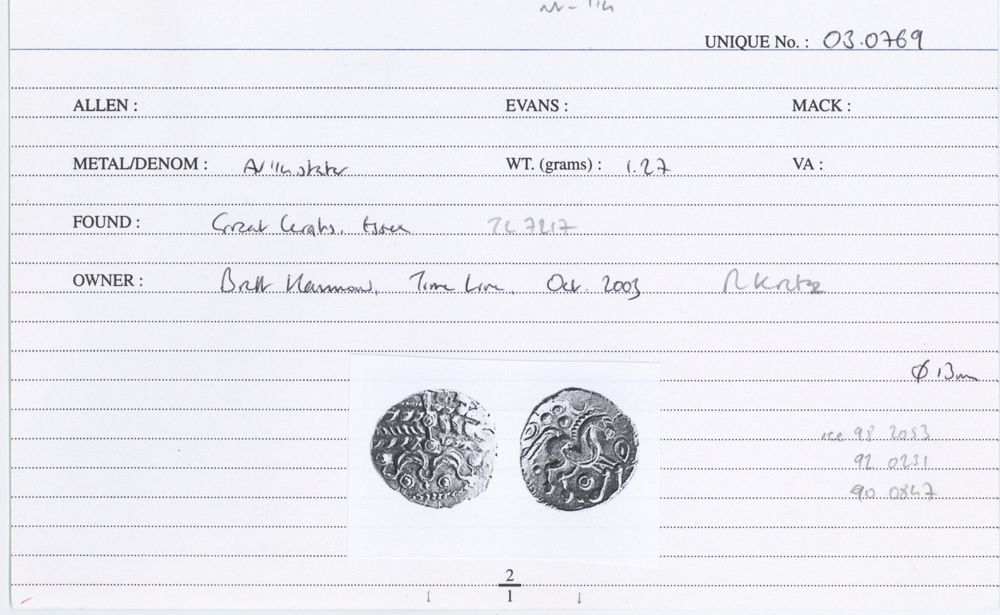 UNIQUE No. : 03.0769
ALLEN : EVANS : MACK :
METAL/DENOM : AV 1/4 stater WT. (grams) : 1.27 VA :
FOUND : Great Essex TL 7217
OWNER : Brett Hammond, Time Line, Oct 2003
Ø 13m
98 2053
92 0231
90 0847
2
1